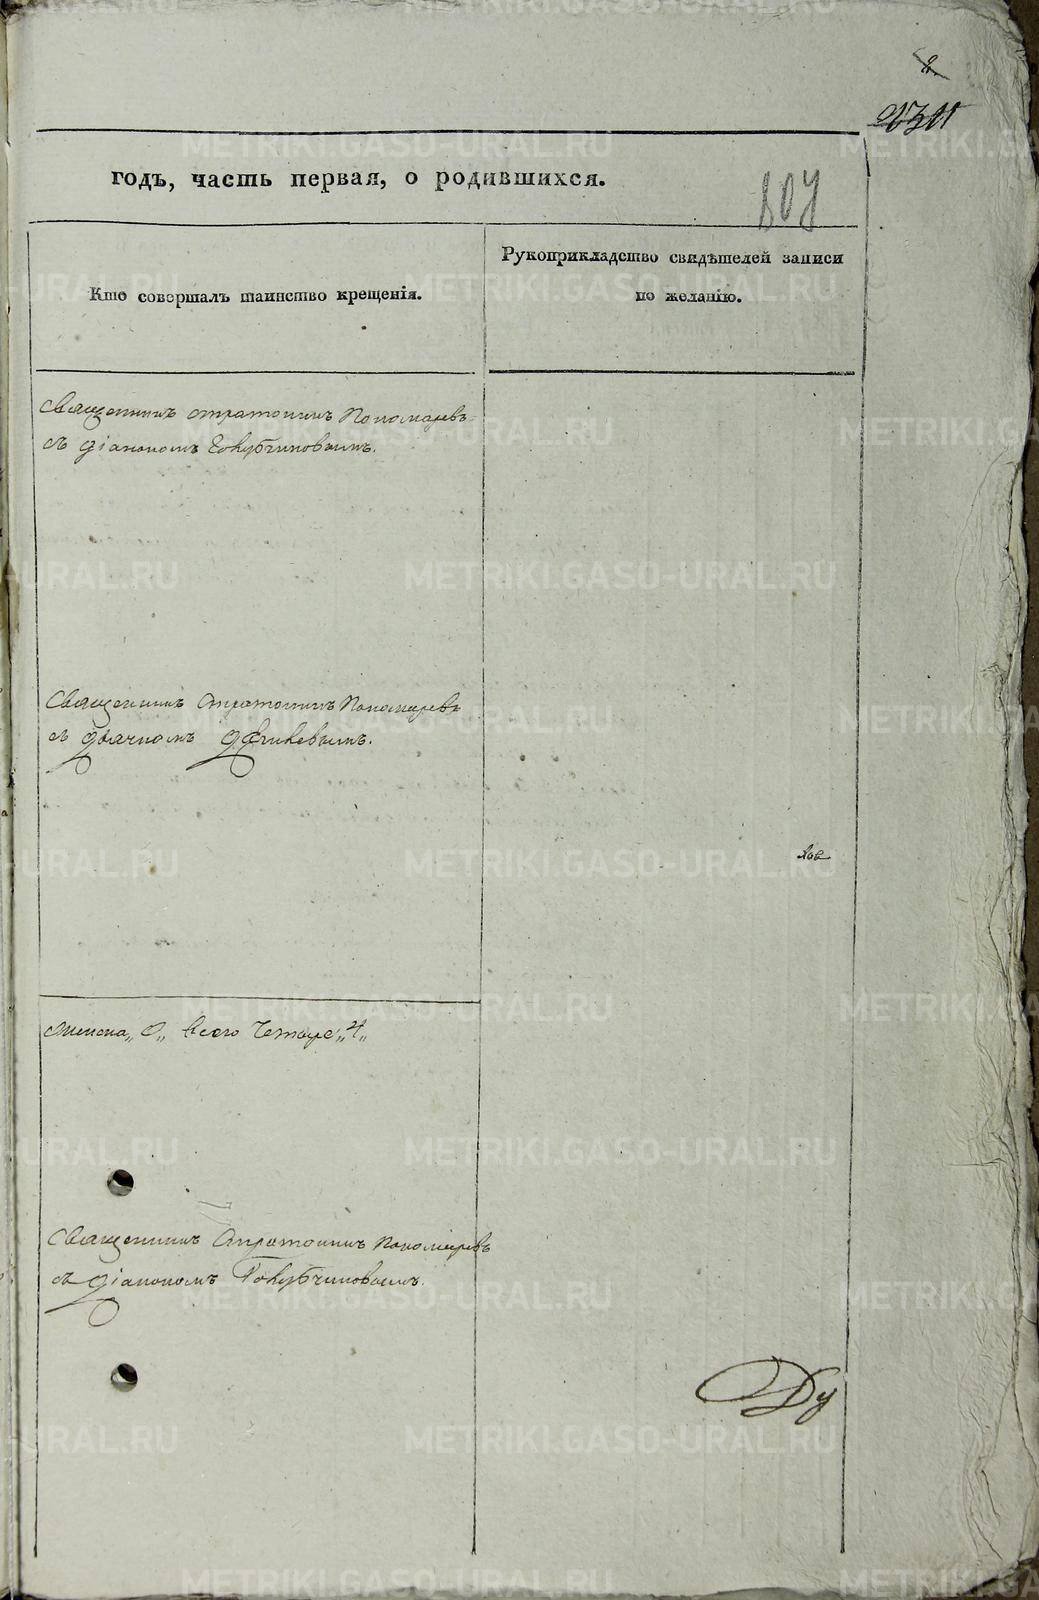 годъ, часть первая, о родившихся.
807
Кто совершалъ таинство крещенія.
Рукоприкладство свидѣтелей записи
по желанію.
Священникъ Стратоникъ Пономаревъ
съ діакономъ
Священникъ Стратоникъ Пономаревъ
съ дьячкомъ
Женска „0„ всего Четыре „4„
Священникъ Стратоникъ Пономаревъ
съ діакономъ
METRIKI.GASO-URAL.RU